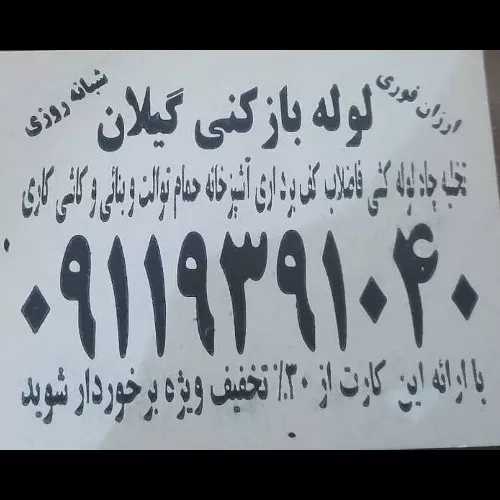 ارزان فوری
لوله بازکنی گیلان
شبانه روزی
تخلیه چاه لوله کنی فاضلاب کف برداری آشپزخانه حمام توالت و بنائی و کاشی کاری
۰۹۱۱۹۳۹۱۰۴۰
با ارائه این کارت از ۳۰٪ تخفیف ویژه برخوردار شوید